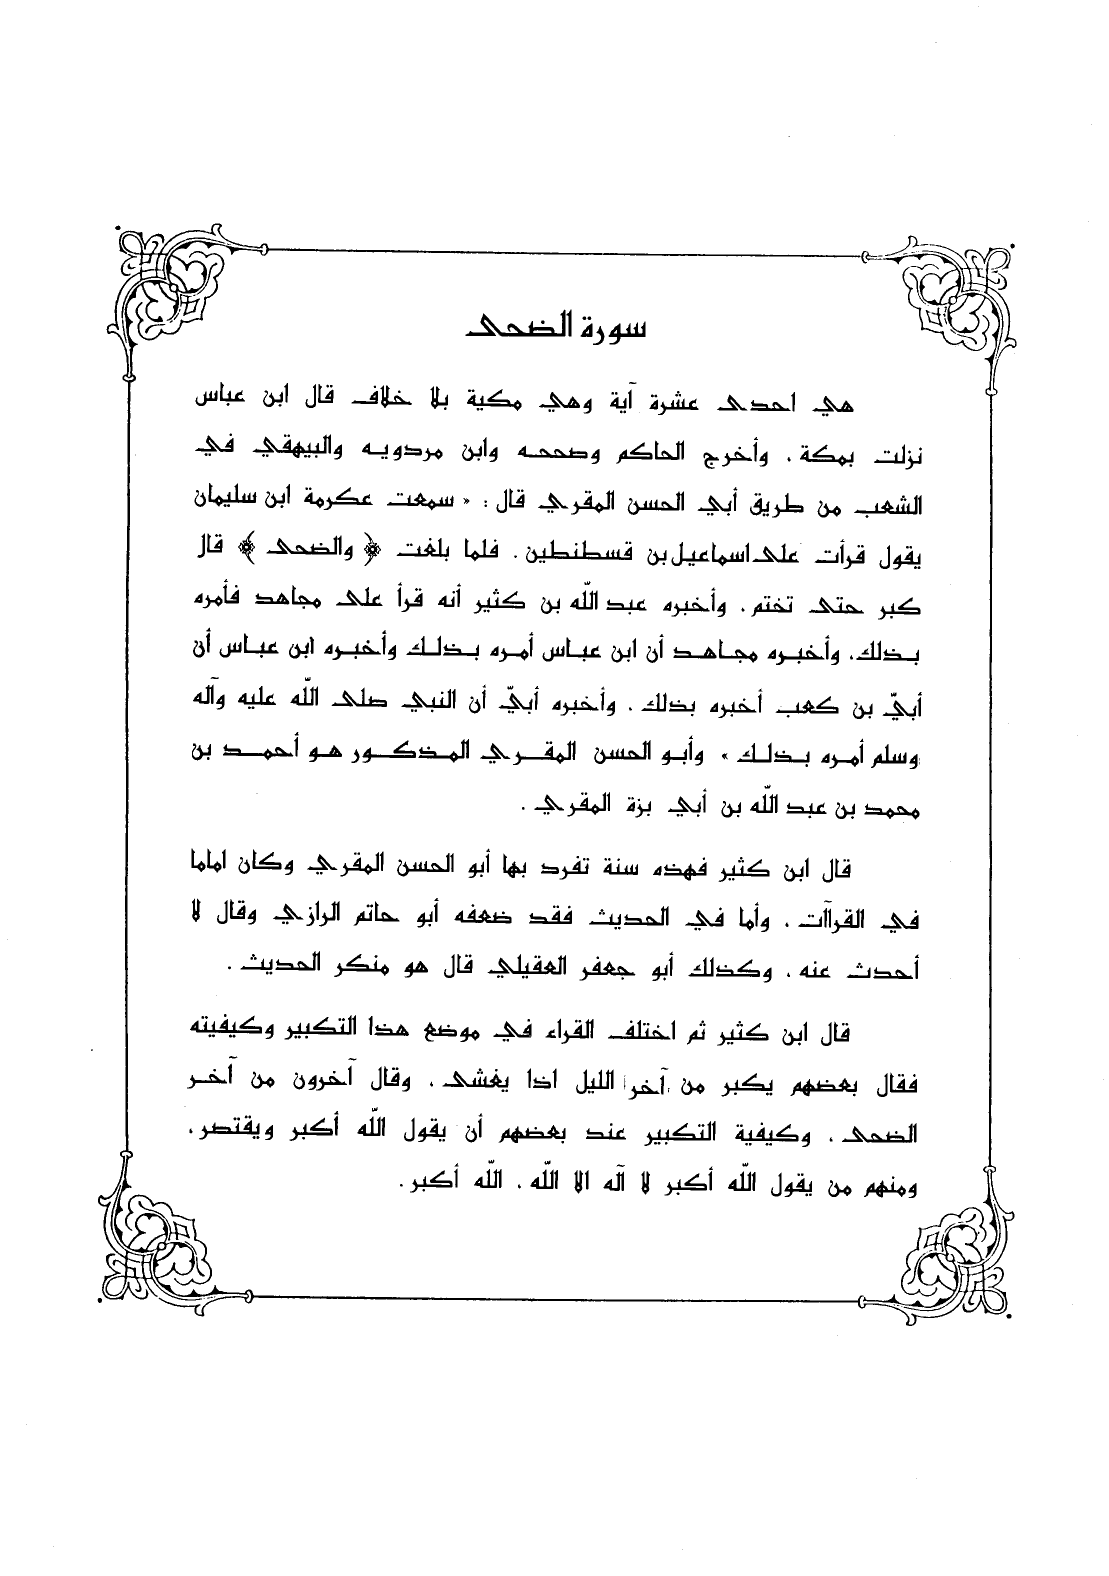 سورة الضحى
هي احدى عشرة آية وهي مكية بلا خلاف قال ابن عباس
نزلت بمكة . وأخرج الحاكم وصححه وابن مردويه والبيهقي في
الشعب من طريق أبي الحسن المقري قال : « سمعت عكرمة ابن سليمان
يقول قرأت على اسماعيل بن قسطنطين . فلما بلغت ﴿ والضحى ﴾ قال
كبر حتى تختم . وأخبره عبد الله بن كثير أنه قرأ على مجاهد فأمره
بذلك . وأخبره مجاهد أن ابن عباس أمره بذلك وأخبره ابن عباس أن
أبيّ بن كعب أخبره بذلك . وأخبره أبيّ أن النبي صلى الله عليه وآله
وسلم أمره بذلك » وأبو الحسن المقري المذكور هو أحمد بن
محمد بن عبد الله بن أبي بزة المقري .
قال ابن كثير فهذه سنة تفرد بها أبو الحسن المقري وكان اماما
في القراآت . وأما في الحديث فقد ضعفه أبو حاتم الرازي وقال لا
أحدث عنه . وكذلك أبو جعفر العقيلي قال هو منكر الحديث .
قال ابن كثير ثم اختلف القراء في موضع هذا التكبير وكيفيته
فقال بعضهم يكبر من آخر الليل اذا يغشى . وقال آخرون من آخر
الضحى . وكيفية التكبير عند بعضهم أن يقول الله أكبر ويقتصر .
ومنهم من يقول الله أكبر لا آله الا الله . الله أكبر .